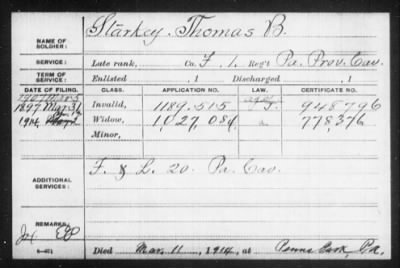 NAME OF SOLDIER: Starkey, Thomas B.
SERVICE: Late rank, Co. F, 1 Reg't Pa. Prov. Cav.
TERM OF SERVICE: Enlisted , 1 Discharged , 1
DATE OF FILING. CLASS. APPLICATION NO. LAW. CERTIFICATE NO.
1897 Mar 31 Invalid, 1189.515 948796
1914 Widow, 1,027,084 778,376
Minor,
ADDITIONAL SERVICES: F. & L. 20. Pa. Cav.
REMARKS:
Died Mar. 11, 1914, at Penna Park, Pa.